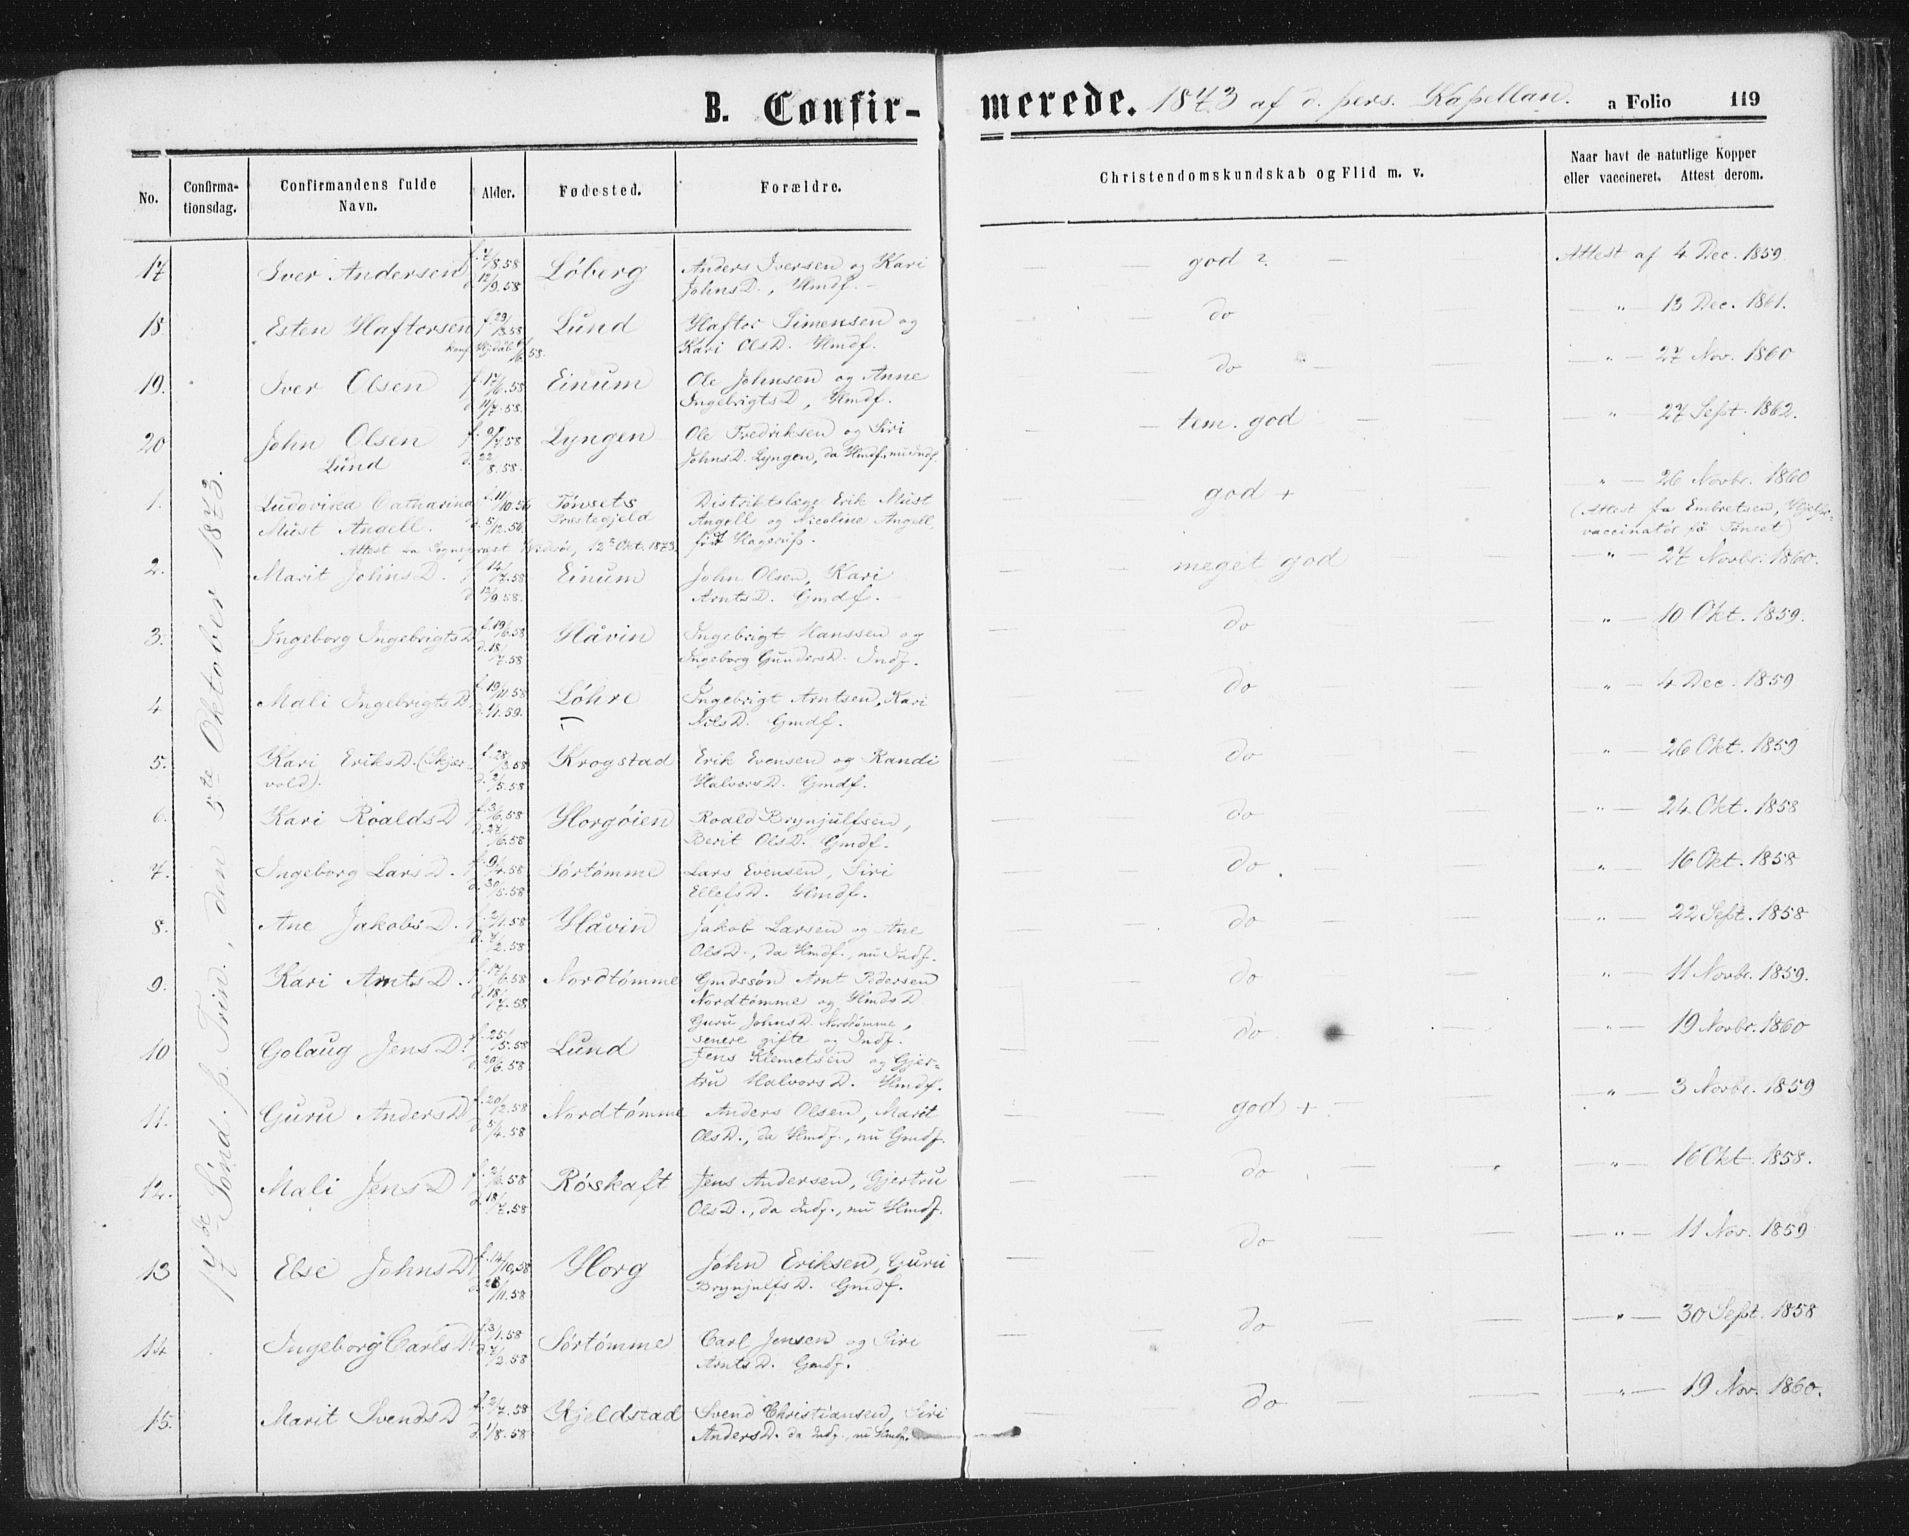 B. Confirmerede. 1873 af d. pers. Kapellan. a Folio 119
No. Confirmationsdag. Confirmandens fulde Navn. Alder. Fødested. Forældre. Christendomskundskab og Flid m. v. Naar havt de naturlige Kopper eller vaccineret. Attest derom.
17de Sønd. p. Trin., den 5te Oktober 1873.
17 Iver Andersen f. 7/8.58 d. 12/9.58 Løberg Anders Iversen og Kari
JohnsD., Hmdf. — god 2. — Attest af 4 Dec. 1859.
18. Esten Haftorsen f. 29/3.58 Lund Haftor Simensen og
Kari OlsD. Hmdf. do " 13 Dec. 1861.
19. Iver Olsen f. 17/6.58 d. 11/7.58. Einum Ole Johnsen og Anne
IngebrigtsD, Hmdf. do — " — 27 Nov. 1860
20 John Olsen Lund 7.58 d. 22/8.58. Lyngen Ole Fredriksen og Siri
JohnsD. Lyngen, da Hmdf. nu Indf. — tem. god — " 27 Sept. 1862.
1. Ludovika Catharina Must Angell. f. 11/10.56 d. 5/12.56 Tønsets Præstegjeld Distriktslæge Erik Must
Angell og Nicoline Angell,
født Hagerup. god + " — 26 Novbr. 1860
(Attest fra Embretsen, Hjelpevaccinatør på Tønset)
Attest fra Sognepræst 12te Okt. 1873.
2. Marit JohnsD. f. 14/7.58 d. 12/9.58. Einum John Olsen, Kari
ArntsD. Gmdf. — meget god — " — 27 Novbr. 1860.
3. Ingeborg IngebrigtsD f. 19/6.58 d. 18/7.58 Håvin Ingebrigt Hanssen og
Ingeborg GundersD. Indf. do — " — 10 Okt. 1859.
4 Mali IngebrigtsD. f. 19/11.58 d. 1/1.59. Løhre Ingebrigt Arntsen, Kari
NilsD. Gmdf. do — " — 4 Dec. 1859
5. Kari EriksD. (Skjervold). f. 28/3.58 d. 2/5.58 Krogstad Erik Evensen og Randi
HalvorsD. Gmdf. do " — 26 Okt. 1859
6. Kari RoaldsD f. 3/6.58 d. 27/6.58 Horgøien Roald Brynjulfsen,
Berit OlsD. Gmdf. do — " — 24 Okt. 1858
7. Ingeborg LarsD. f. 9/4.58 d. 30/5.58 Sørtømme Lars Evensen, Siri
EllefsD. Hmdf. do. " — 16 Okt. 1858
8. Ane JakobsD. f. 2/1.58 d. 7/2.58 Håvin Jakob Larsen og Ane
OlsD., da Hmdf., nu Indf. do " — 22 Sept. 1858
9. Kari ArntsD. f. 17/6.58 d. 18/7.58 Nordtømme Gmdssøn Arnt Pedersen
Nordtømme og HmdsD
Guru JohnsD. Nordtømme,
senere gifte og Indf. do " — 11 Novbr. 1859.
10 Golaug JensD. f. 25/5.58 d. 20/6.58 Lund Jens Klemetsen og Gjertru HalvorsD. Hmdf. do — " — 19 Novbr. 1860
11. Guru AndersD f. 20/2.58 d. 5/4.58 Nordtømme Anders Olsen, Marit
OlsD., da Hmdf., nu Gmdf. god + — " — 3 Novbr. 1859
12. Mali JensD f. 2/6.58 d. 18/7.58 Røskaft Jens Andersen, Gjertru
OlsD., da Indf., nu Hmdf. do — " — 16 Okt. 1858.
13 Else JohnsD f. 14/10.58 d. 28/11.58 Horg John Eriksen, Guru
BrynjulfsD. Gmdf. do — " — 11 Nov. 1859
14 Ingeborg CarlsD. f. 3/1.58 d. 7/2.58 Sørtømme Carl Jensen og Siri
ArntsD. Gmdf. do — " — 30 Sept. 1858
15. Marit SvendsD f. 2/7.58 d. 1/8.58 Kjeldstad Svend Christiansen, Siri
AndersD. da Indf., nu Hmdf. do — " — 19 Nov. 1860.